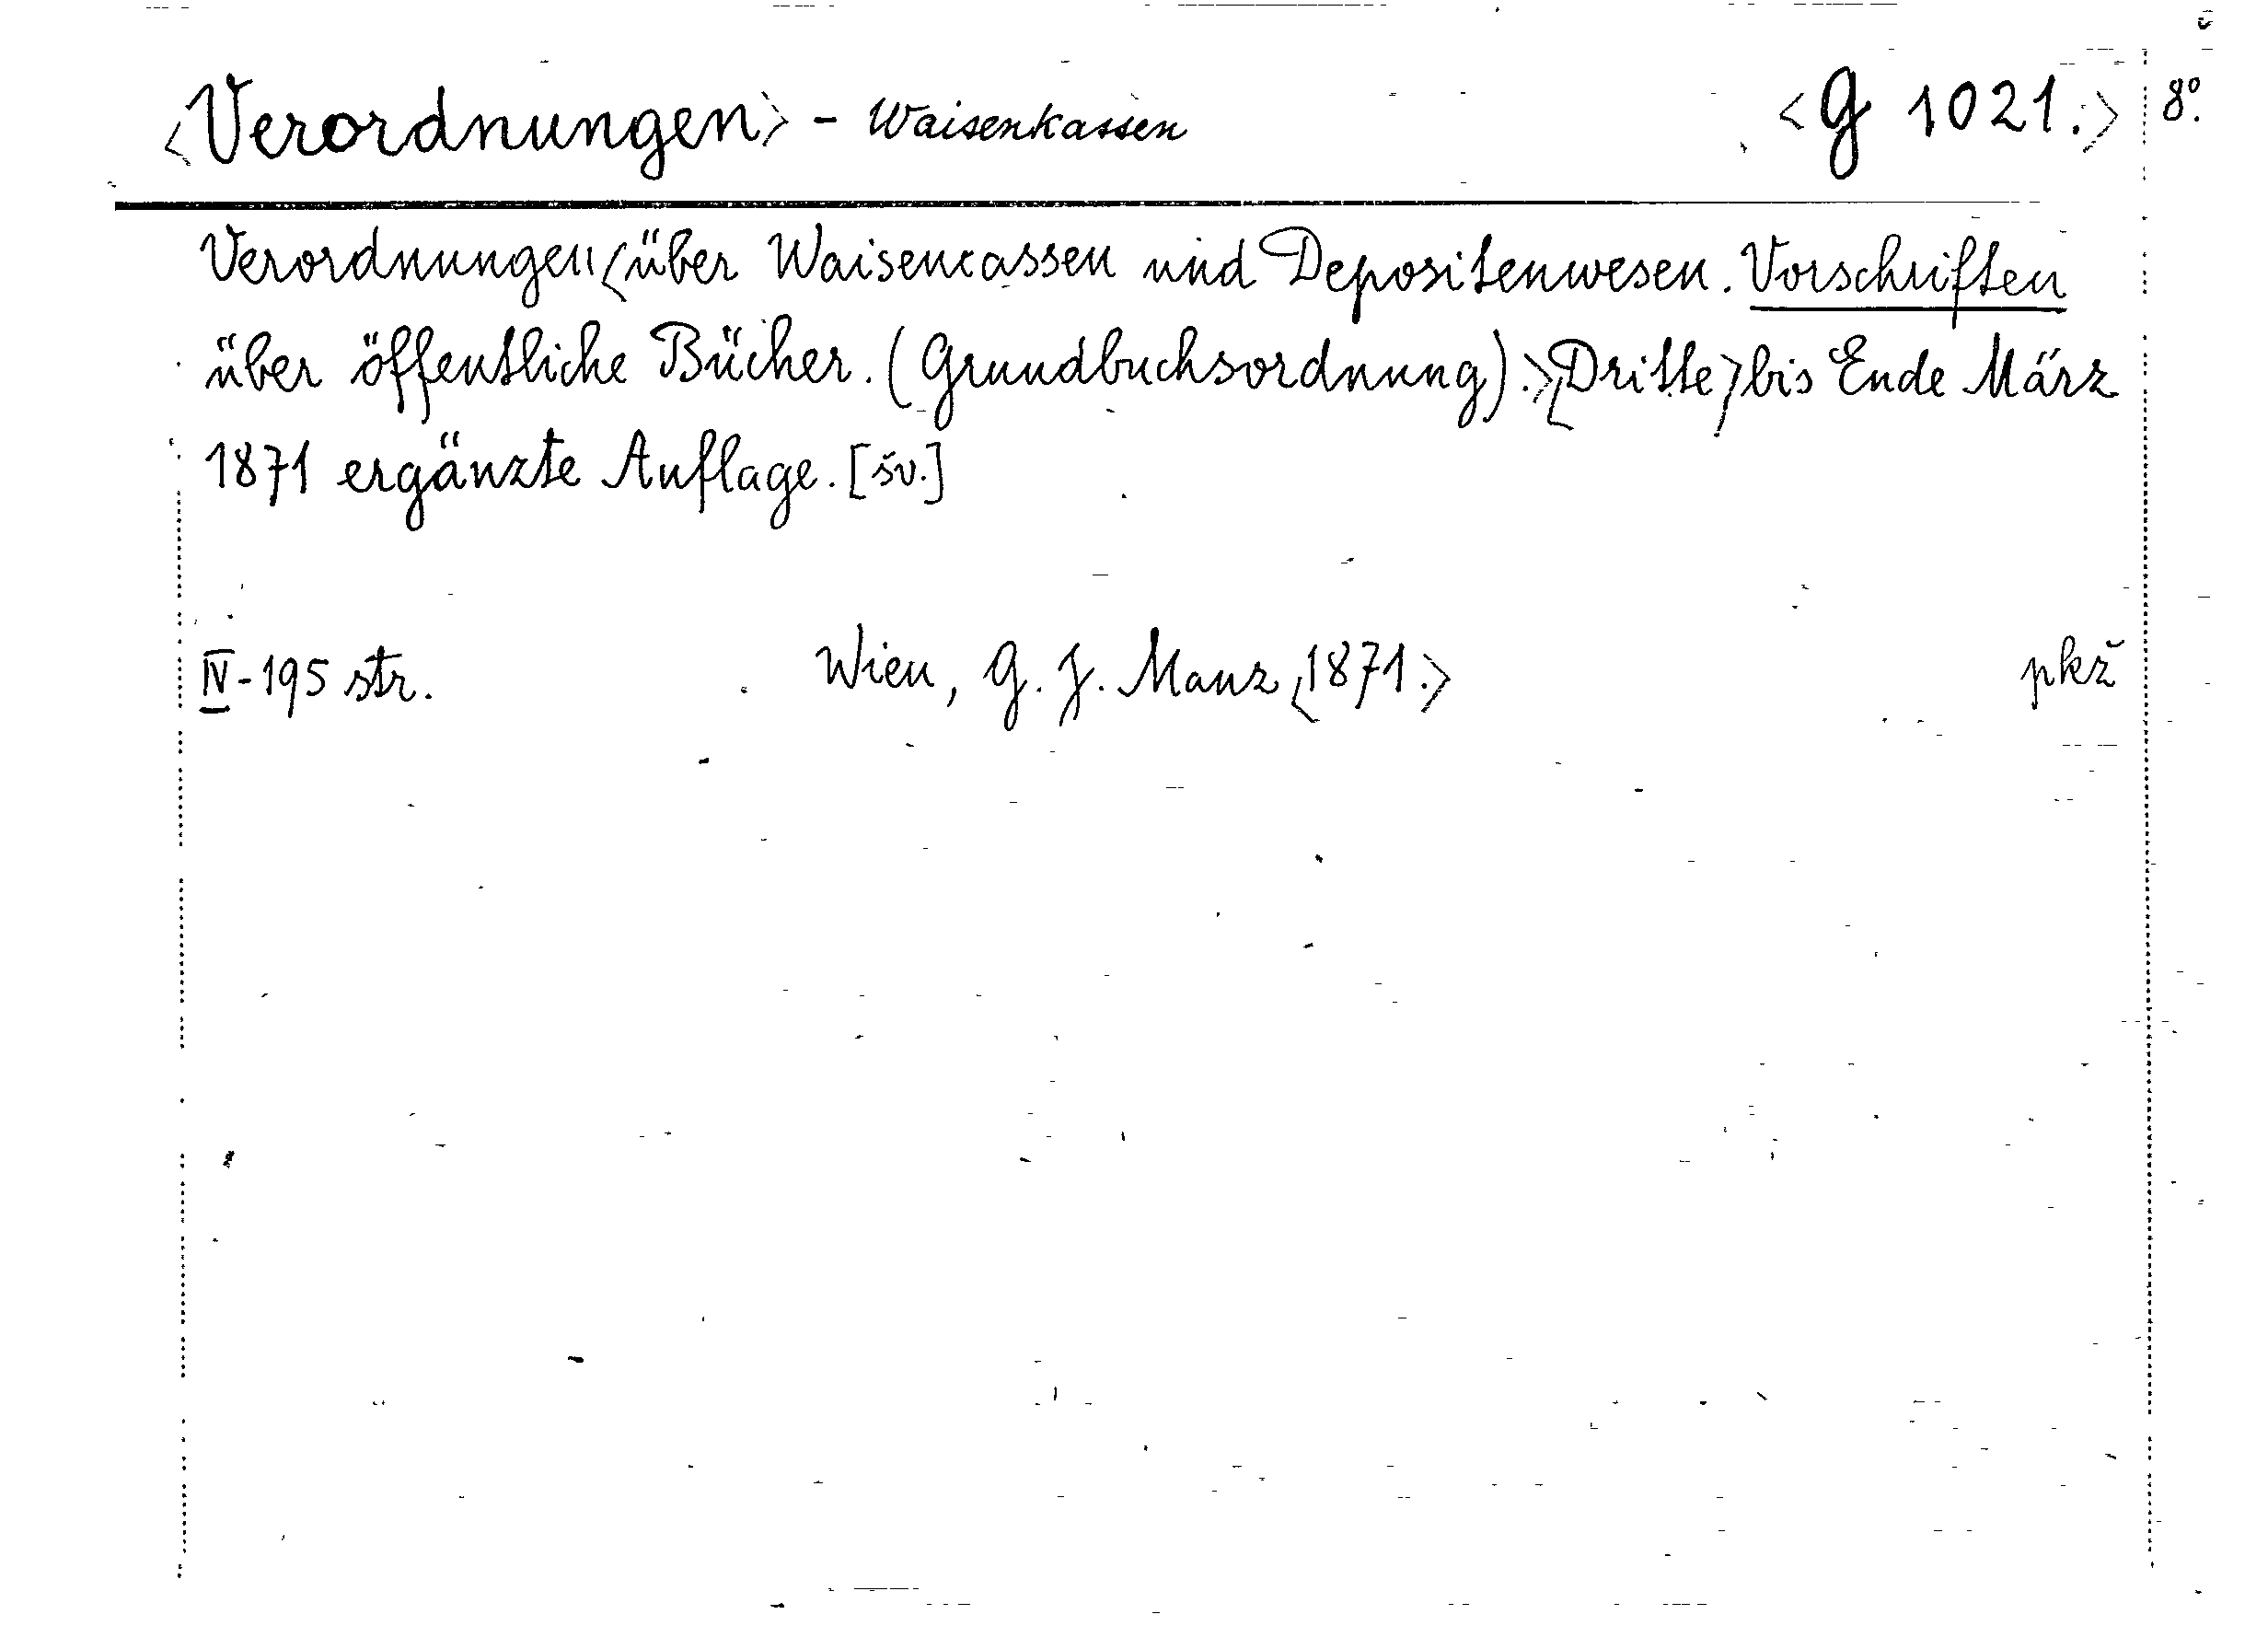 <Verordnungen> - Waisenkassen <G 1021.> 8º.
Verordnungen <über Waisencassen und Depositenwesen. Vorschriften
über öffentliche Bücher. (Grundbuchsordnung).> <Dritte> bis Ende März
1871 ergänzte Auflage. [šv.]
IV-195 str. Wien, G. J. Manz <1871.> pkž